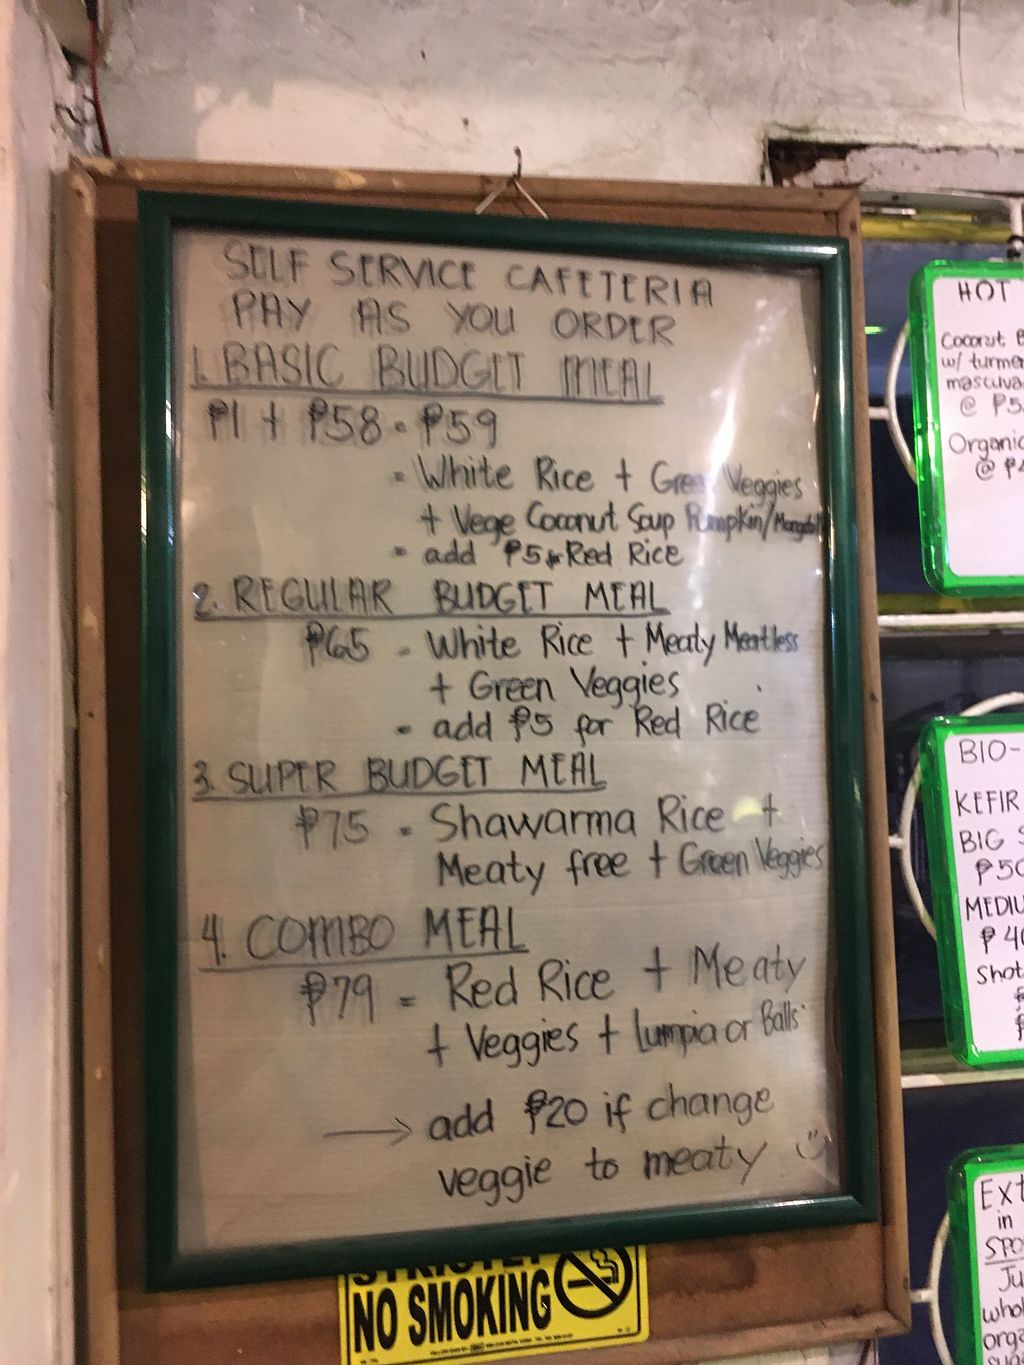 SELF SERVICE CAFETERIA
PAY AS YOU ORDER
1. BASIC BUDGET MEAL
₱1 + ₱58 = ₱59
= White Rice + Green Veggies
+ Vege Coconut Soup Pumpkin/
= add ₱5 Red Rice
2. REGULAR BUDGET MEAL
₱65 = White Rice + Meaty Meatless
+ Green Veggies
= add ₱5 for Red Rice
3. SUPER BUDGET MEAL
₱75 = Shawarma Rice +
Meaty free + Green Veggies
4. COMBO MEAL
₱79 = Red Rice + Meaty
+ Veggies + Lumpia or Balls
→ add ₱20 if change
veggie to meaty
STRICTLY
NO SMOKING
HOT
Coconut
w/
@
Organic
@
BIO-
KEFIR
BIG
in